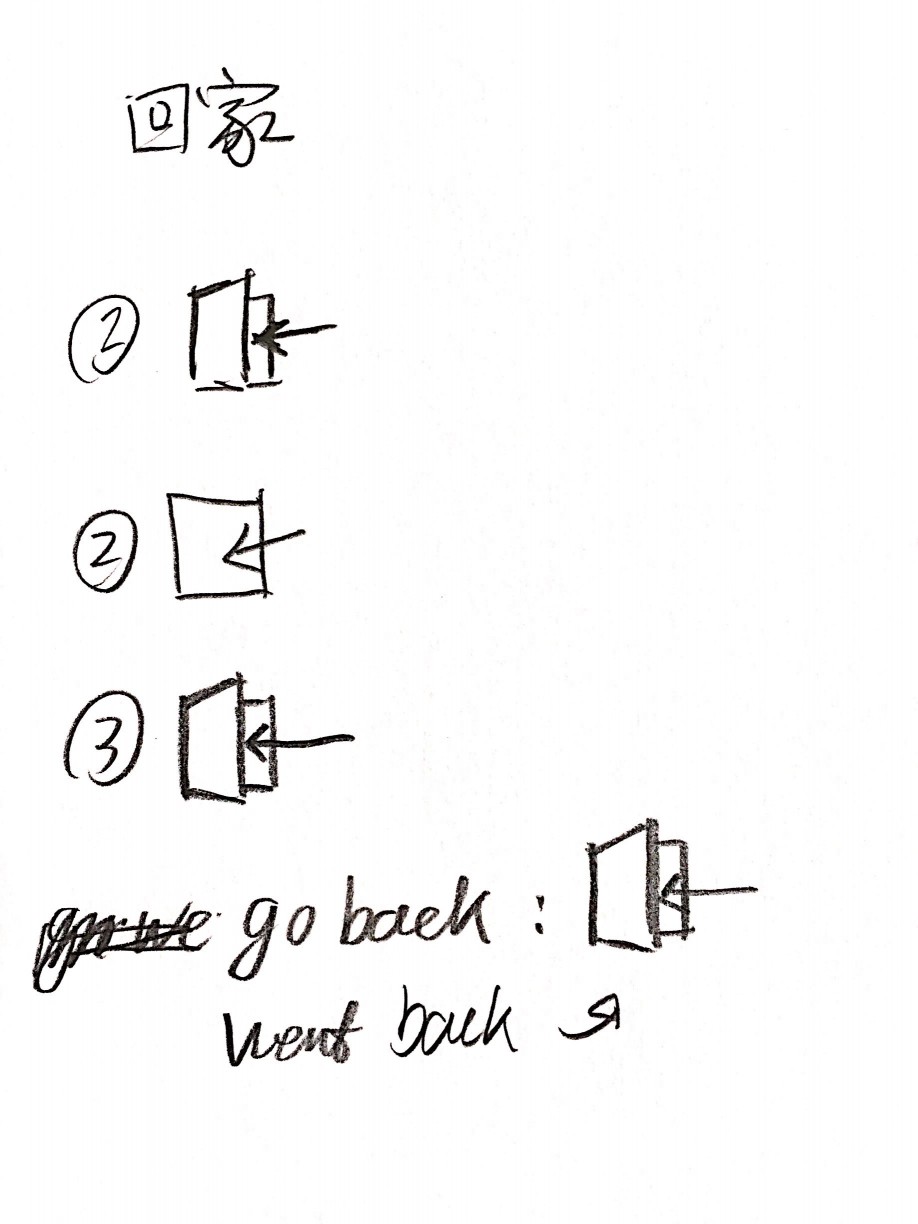 回家
②
②
③
go back :
went back